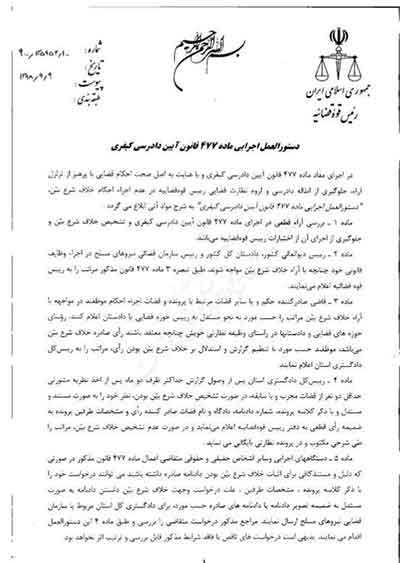 بسم الله الرحمن الرحیم
شماره: ۹۰۰۰/۱۳۵۹۵۲/۱۰۰
تاریخ: ۱۳۹۸/۹/۹
پیوست:
طبقه‌بندی:
جمهوری اسلامی ایران
رئیس قوه قضائیه
دستورالعمل اجرایی ماده ۴۷۷ قانون آیین دادرسی کیفری
در اجرای مفاد ماده ۴۷۷ قانون آیین دادرسی کیفری و با عنایت به اصل صحت احکام قضایی با پرهیز از تزلزل
آراء، جلوگیری از اطاله دادرسی و لزوم نظارت قضایی رییس قوه‌قضاییه در عدم اجراء احکام خلاف شرع بیّن،
"دستورالعمل اجرایی ماده ۴۷۷ قانون آیین دادرسی کیفری" به شرح مواد آتی ابلاغ می گردد:
ماده ۱ـ بررسی آراء قطعی در اجرای ماده ۴۷۷ قانون آیین دادرسی کیفری و تشخیص خلاف شرع بیّن و
جلوگیری از اجرای آن از اختیارات رییس قوه‌قضاییه می‌باشد.
ماده ۲ـ رییس دیوانعالی کشور، دادستان کل کشور و رییس سازمان قضائی نیروهای مسلح در اجراء وظایف
قانونی خود چنانچه با آراء خلاف شرع بیّن مواجه شوند، طبق تبصره ۳ ماده ۴۷۷ قانون مذکور مراتب را به رییس
قوه قضائیه اعلام می‌نمایند.
ماده ۳ـ قاضی صادرکننده حکم و یا سایر قضات مرتبط با پرونده و قضات اجراء احکام موظفند در مواجهه با
آراء خلاف شرع بیّن مراتب را حسب مورد به نحو مستدل به رییس حوزه قضایی یا دادستان اعلام کنند. رؤسای
حوزه های قضایی و دادستانها در راستای وظیفه نظارتی خویش چنانچه معتقد باشند رأی صادره خلاف شرع بیّن
می‌باشد، موظفند حسب مورد، با تنظیم گزارش و استدلال بر خلاف شرع بیّن بودن رأی، مراتب را به رییس‌کل
دادگستری استان اعلام نمایند.
ماده ۴ـ رییس‌کل دادگستری استان پس از وصول گزارش حداکثر ظرف دو ماه پس از اخذ نظریه مشورتی
حداقل دو نفر از قضات مجرب و با سابقه، در صورت تشخیص خلاف شرع بیّن بودن، نظر خود را به صورت مستند و
مستدل و با ذکر کلاسه پرونده، شماره دادنامه، دادگاه و نام قضات صادر کننده رأی و مشخصات طرفین پرونده به
ضمیمه رأی قطعی به دفتر رییس قوه‌قضاییه اعلام می‌نماید و در صورت عدم تشخیص خلاف شرع بیّن، مراتب را
طی شرحی مکتوب و در پرونده نظارتی بایگانی می نماید.
ماده ۵ـ دستگاههای اجرایی وسایر اشخاص حقیقی و حقوقی متقاضی اعمال ماده ۴۷۷ قانون مذکور در صورتی
که دلیل و مستنداتی برای اثبات خلاف شرع بیّن بودن دادنامه صادره داشته باشند می توانند درخواست خود را
با ذکر کلاسه پرونده، مشخصات طرفین، علت درخواست وجهت خلاف شرع بیّن دانستن دادنامه به صورت
مستدل به ضمیمه تصویر دادنامه یا دادنامه های صادره حسب مورد، برای دادگستری کل استان مربوط یا سازمان
قضایی نیروهای مسلح ارسال نمایند. مراجع مذکور درخواست متقاضی را بررسی و طبق ماده ۴ این دستورالعمل
اقدام می نمایند. بدیهی است درخواست های ناقص یا فاقد شرایط مذکور قابل بررسی و ترتیب اثر نخواهد بود.
۱